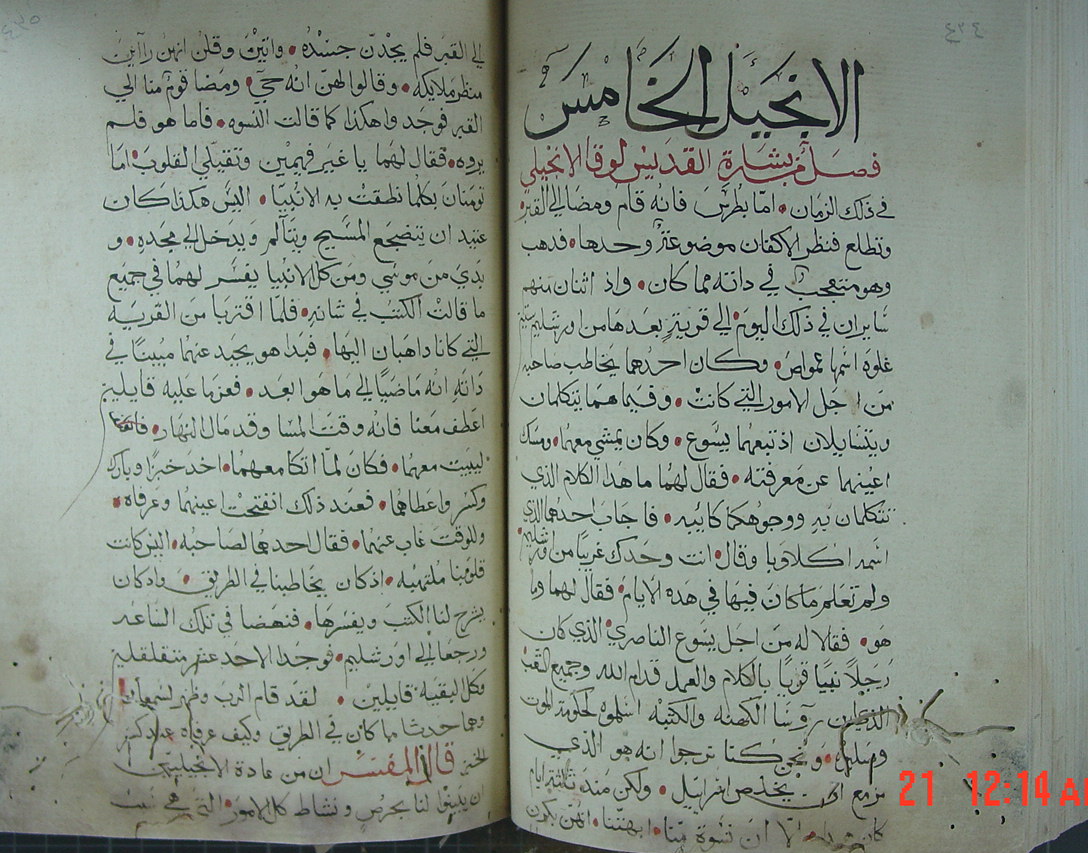 الانجيل الخامس
فصل من بشارة القديس لوقا الانجيلي
في ذلك الزمان • امّا بطرس فانه قام ومضا الي القبر
وتطلع فنظر الاكفان موضوعة وحدها • فدهب
وهو متعجب في داته مما كان • واذ اثنان منهم
سايران في ذلك اليوم الي قرية بعدها من اورشليم ستين
غلوة اسمها عمواص • وكان احدهما يخاطب صاحبه
من اجل الامور التي كانت • وفيما هما يتكلمان
ويتسايلان اذ تبعهما يسوع • وكان يمشي معهما • ومسك
اعينهما عن معرفته • فقال لهما ما هدا الكلام الذي
تتكلمان به ووجوهكما كائبه • فاجاب احدهما الذي
اسمه اكلاوبا وقال • انت وحدك غريبًا من اورشليم
ولم تعلم ما كان فيها في هده الايام • فقال لهما وما
هو • فقالا له من اجل يسوع الناصري الذي كان
رجلاً نبيًا قويًا بالكلام والعمل قدام الله وجميع الشعب
روسا الكهنه والكتبه اسلموه لحكومة الموت
وصلبوه • ونحن كنا نرجوا انه هو الذي
مزمع ان يخلص اسراييل • ولكن مند ثلاثة ايام
الا ان نسوة منا • ابهتننا • انهن بكرن
الي القبر فلم يجدن جسده • واتين وقلن انهن راآين
منظر ملايكه • وقالوا لهن انه حي • ومضا قوم منا الي
القبر فوجدوا هكذا كما قالت النسوه • فاما هو فلم
يروه • فقال لهما يا غير فهيمين وثقيلي القلوب • اما
تومنان بكلما نطقت به الانبيا • اليس هكذا كان
عتيد ان يتضجع المسيح ويتآلم ويدخل الي مجده • و
بدي من موسي ومن كل الانبيا يفسر لهما في جميع
ما قالت الكتب في شانه • فلما اقتربا من القرية
التي كانا داهبان اليها • فبدا هو يجيد عنهما مبينًا في
داته انه ماضيًا الي ما هو ابعد • فعزما عليه قايلين
اعطف معنا فانه وقت المسا وقد مال النهار •
ليبيت معهما • فكان لما اتكا معهما • اخد خبزًا وبارك
وكسر واعطاهما • فعند ذلك انفتحت اعينهما وعرفاه •
وللوقت غاب عنهما • فقال احدهما لصاحبه • اليس كانت
قلوبنا ملتهبه • اذ كان يخاطبنا في الطريق • واد كان
يشرح لنا الكتب ويفسرها • فنهضا في تلك الساعه
ورجعا الي اورشليم • فوجدا الاحد عشر
وكل البقيه قايلين • لقد قام الرب وظهر لسمعان
وهما حدثا بما كان في الطريق وكيف عرفاه عند كسر
الخبز قال المفسر ان من عادة الانجيليين
لنا بحرص ونشاط كل الامور التي هي